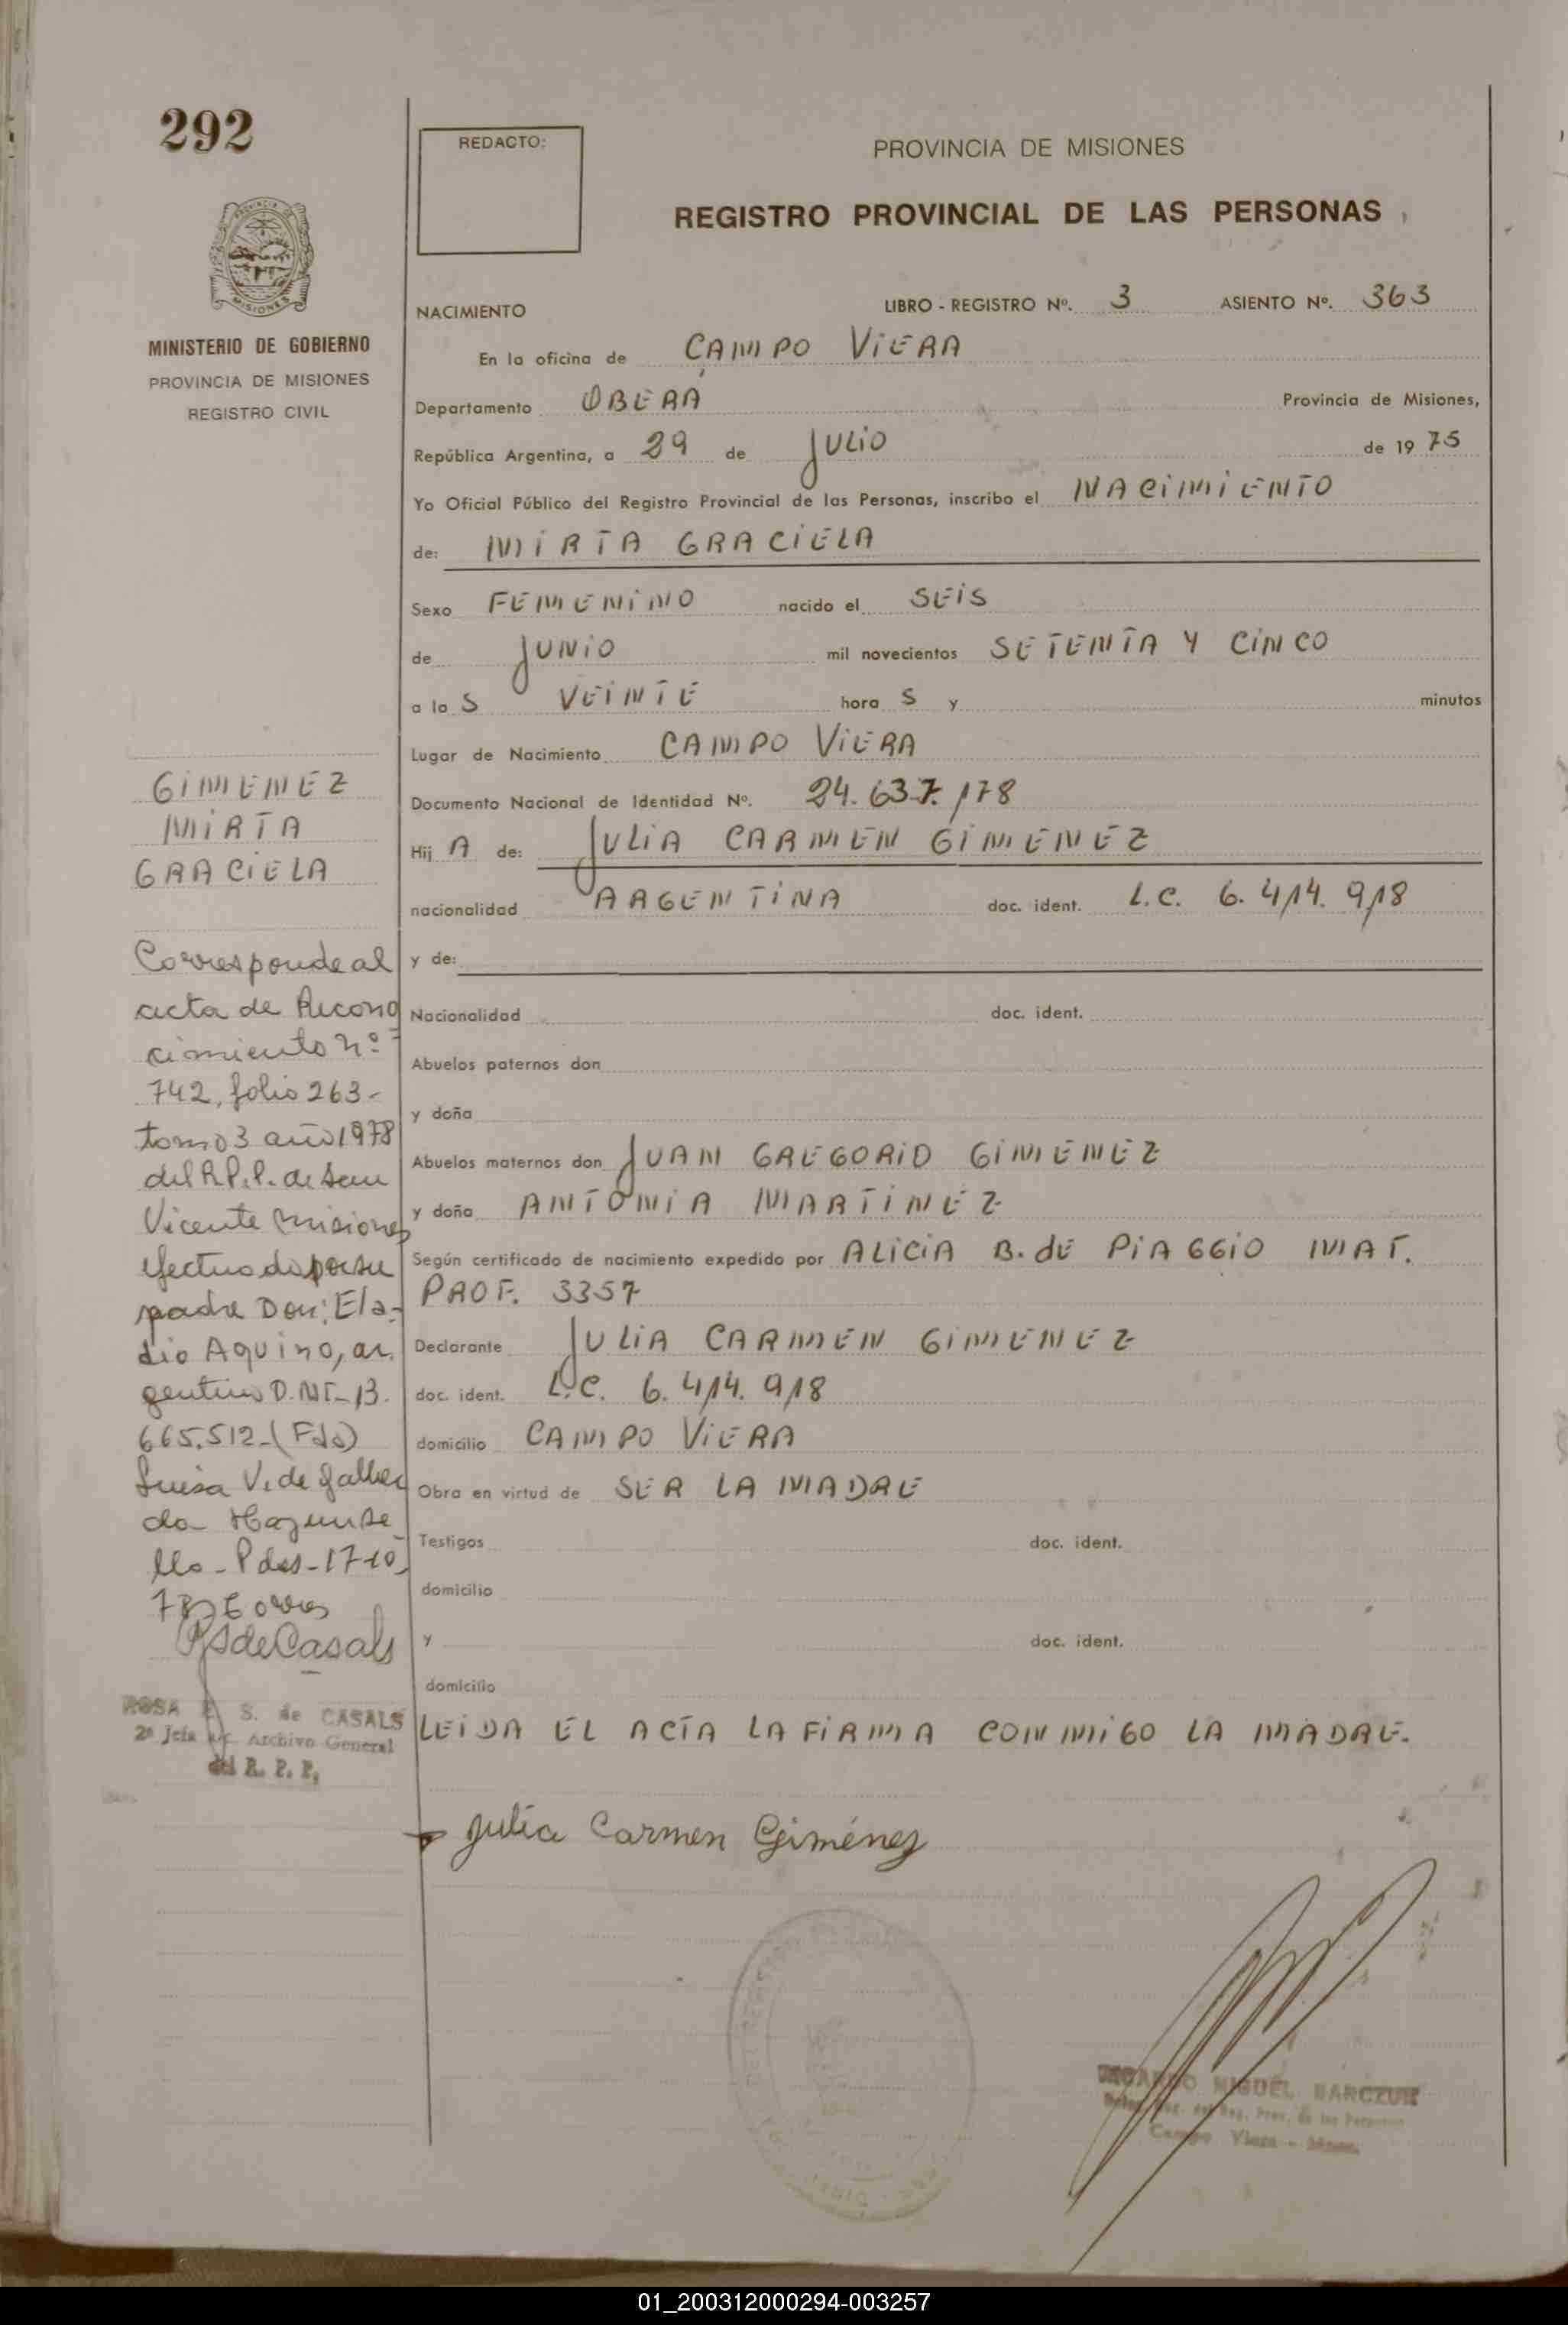 292
REDACTO:
PROVINCIA DE MISIONES
REGISTRO PROVINCIAL DE LAS PERSONAS
MINISTERIO DE GOBIERNO
PROVINCIA DE MISIONES
REGISTRO CIVIL
NACIMIENTO LIBRO - REGISTRO Nº. 3 ASIENTO Nº. 363
En la oficina de CAMPO VIERA
Departamento OBERÁ Provincia de Misiones,
República Argentina, a 29 de JULIO de 1975
Yo Oficial Público del Registro Provincial de las Personas, inscribo el NACIMIENTO
de: MIRTA GRACIELA
Sexo FEMENINO nacido el SEIS
de JUNIO mil novecientos SETENTA Y CINCO
a la S VEINTE hora S y minutos
Lugar de Nacimiento CAMPO VIERA
Documento Nacional de Identidad Nº. 24.637.178
Hij A de: JULIA CARMEN GIMENEZ
nacionalidad ARGENTINA doc. ident. L.C. 6.414.918
y de:
Nacionalidad doc. ident.
Abuelos paternos don
y doña
Abuelos maternos don JUAN GREGORIO GIMENEZ
y doña ANTONIA MARTINEZ
Según certificado de nacimiento expedido por ALICIA B. dE PIAGGIO MAT.
PROF. 3357
Declarante JULIA CARMEN GIMENEZ
doc. ident. L.C. 6.414.918
domicilio CAMPO VIERA
Obra en virtud de SER LA MADRE
Testigos doc. ident.
domicilio
y doc. ident.
domicilio
LEIDA EL ACTA LA FIRMA CONMIGO LA MADRE.
Julia Carmen Giménez
GIMENEZ
MIRTA
GRACIELA
Corresponde al
acta de Recono
cimiento nº
742, folio 263-
tomo 3 año 1978
del R.P.P. de San
Vicente Misiones
efectuado por su
padre Don: Ela-
dio Aquino, ar.
gentino D.N.I-13.
665.512-(Fdo)
Luisa V. de
Pdas-17-10-
78
RS de Casals
ROSA E. S. de CASALS
2ª Jefa a/c. Archivo General
del R. P. P.
MIGUEL BARCZUK
Campo Viera - Mnes.
01_200312000294-003257